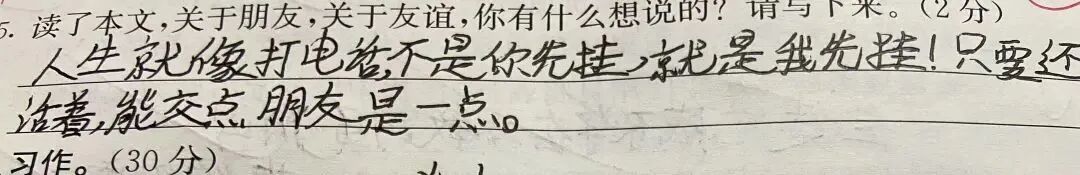 5. 读了本文,关于朋友,关于友谊,你有什么想说的? 请写下来。(2分)
人生就像打电话,不是你先挂,就是我先挂!只要还
活着,能交点朋友是一点。
习作。(30分)